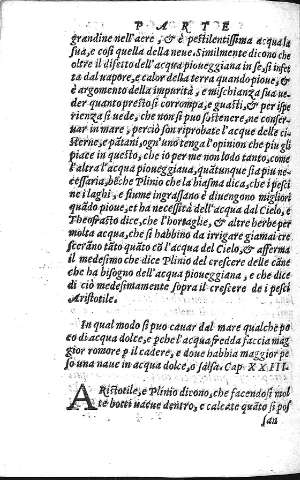 PARTE
grandine nell'aere, & è pestilentissima acqua la
sua, e cosi quella della neue. Similmente dicono che
oltre il difetto dell'acqua pioueggiana in se, si infet
ta dal vapore, e calor della terra quando pioue, &
è argomento della impurità, e mischianza sua ue-
der quanto presto si corrompa, e guasti, & per ispe
rienza si uede, che non si puo sostenere, ne conser-
uar in mare, perciò son riprobate l'acque delle ci-
sterne, e pãtani, ogn'uno tenga l'opinion che piu gli
piace in questo, che io per me non lodo tanto, come
l'altra l'acqua pioueggiana, quãtunque sia piu ne-
cessaria, bẽche Plinio che la biasma dica, che i pesci
ne i laghi, e fiume ingrassano è diuengono migliori
quãdo pioue, et ha necessità dell'acqua dal Cielo, e
Theofrasto dice, che l'hortaglie, & altre herbe per
molta acqua, che si habbino da irrigare giamai cre
scerãno tãto quãto cõ l'acqua del Cielo, & afferma
il medesimo che dice Plinio del crescere delle cãne
che ha bisogno dell'acqua pioueggiana, e che dice
di ciò medesimamente sopra il crescere de i pesci
Aristotile.
In qual modo si puo cauar dal mare qualche po
co di acqua dolce, e pche l'acqua fredda faccia mag
gior romore p il cadere, e doue habbia maggior pe
so una naue in acqua dolce, o salsa. Cap XXIII.
ARistotile, e Plinio dicono, che facendosi mol
te botti uacue dentro, e calcate quãto si pos
san